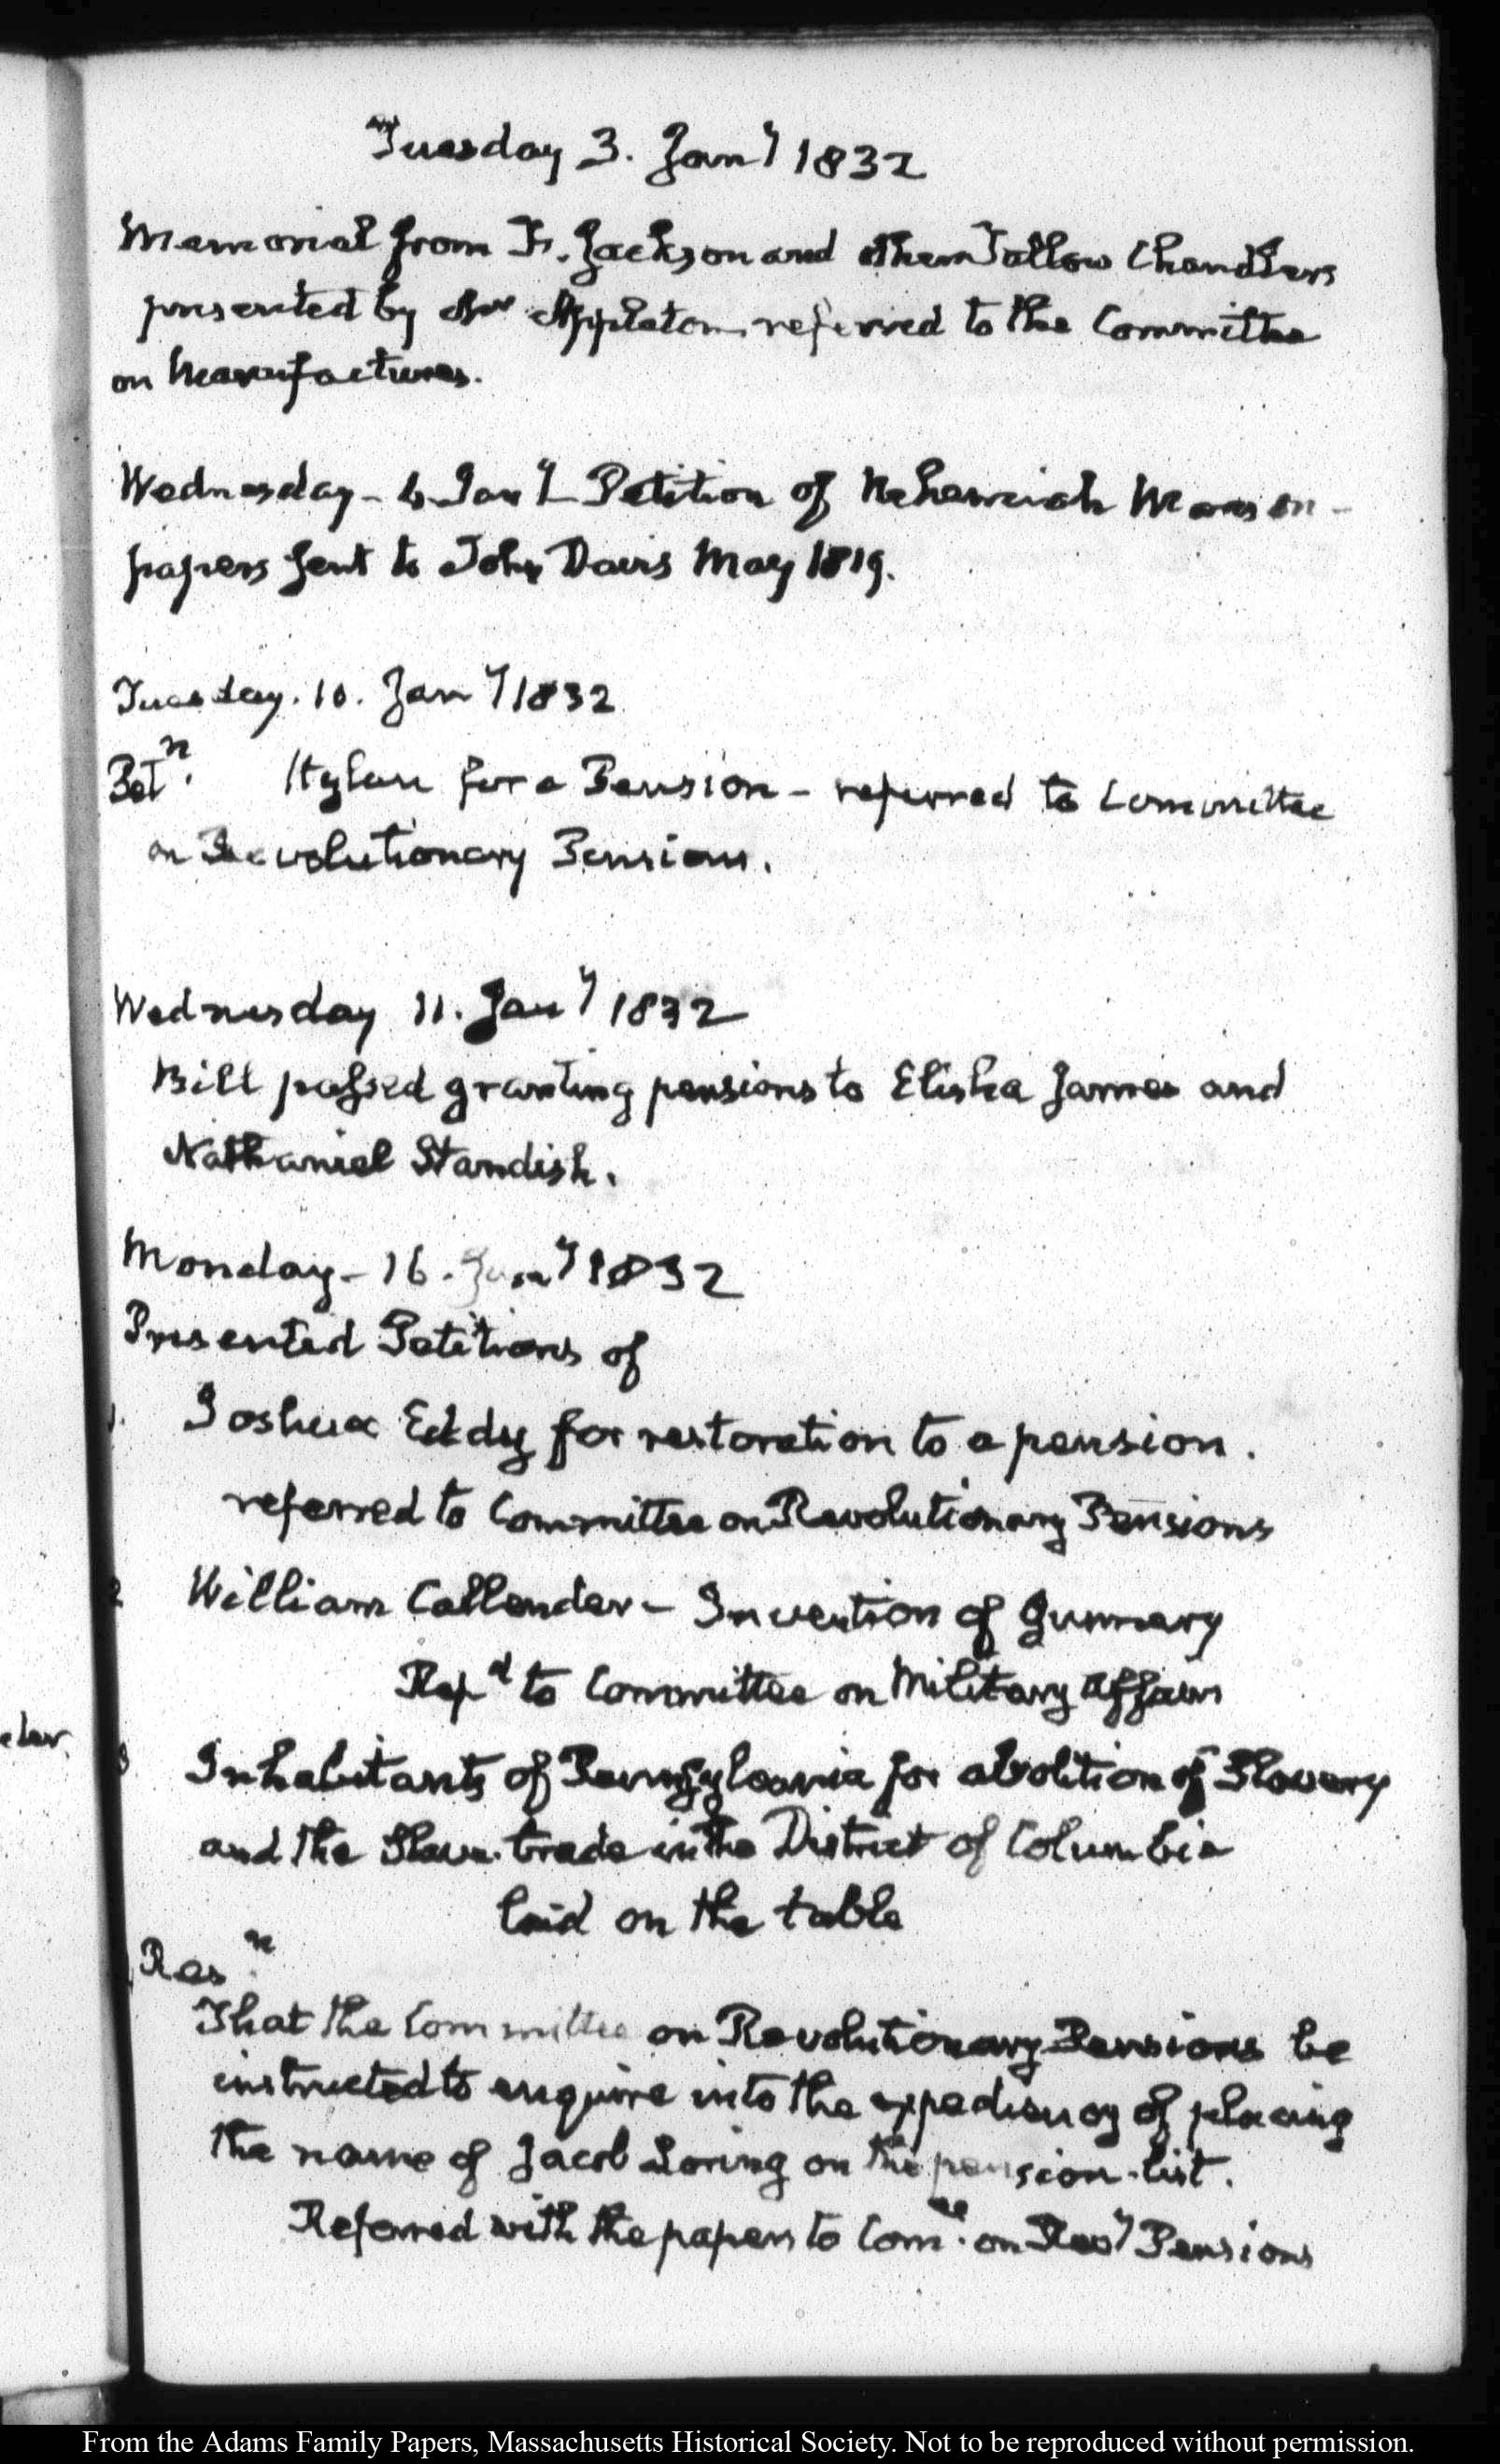 Tuesday 3. Jany 1832
Memorial from F. Jackson and other Tallow Chandlers
presented by Mr Appleton referred to the Committee
on Manufactures.
Wednesday - 4 Jany - Petition of Nehemiah
papers sent to John Davis May 1819.
Tuesday. 10. Jany 1832
Petn. Hyland for a Pension - referred to Committee
on Revolutionary Pensions.
Wednesday 11. Jany 1832
Bill passed granting pensions to Elisha James and
Nathaniel Standish.
Monday - 16. Jany 1832
Presented Petitions of
1. Joshua Eddy for restoration to a pension.
referred to Committee on Revolutionary Pensions
2 William Callender - Invention of Gunnery
Refd to Committee on Military Affairs
3 Inhabitants of Pennsylvania for abolition of Slavery
and the Slave-trade in the District of Columbia
laid on the table
Resn.
That the Committee on Revolutionary Pensions be
instructed to enquire into the expediency of placing
the name of Jacob Loring on the pension-list.
Referred with the papers to Comee. on Revy Pensions
From the Adams Family Papers, Massachusetts Historical Society. Not to be reproduced without permission.